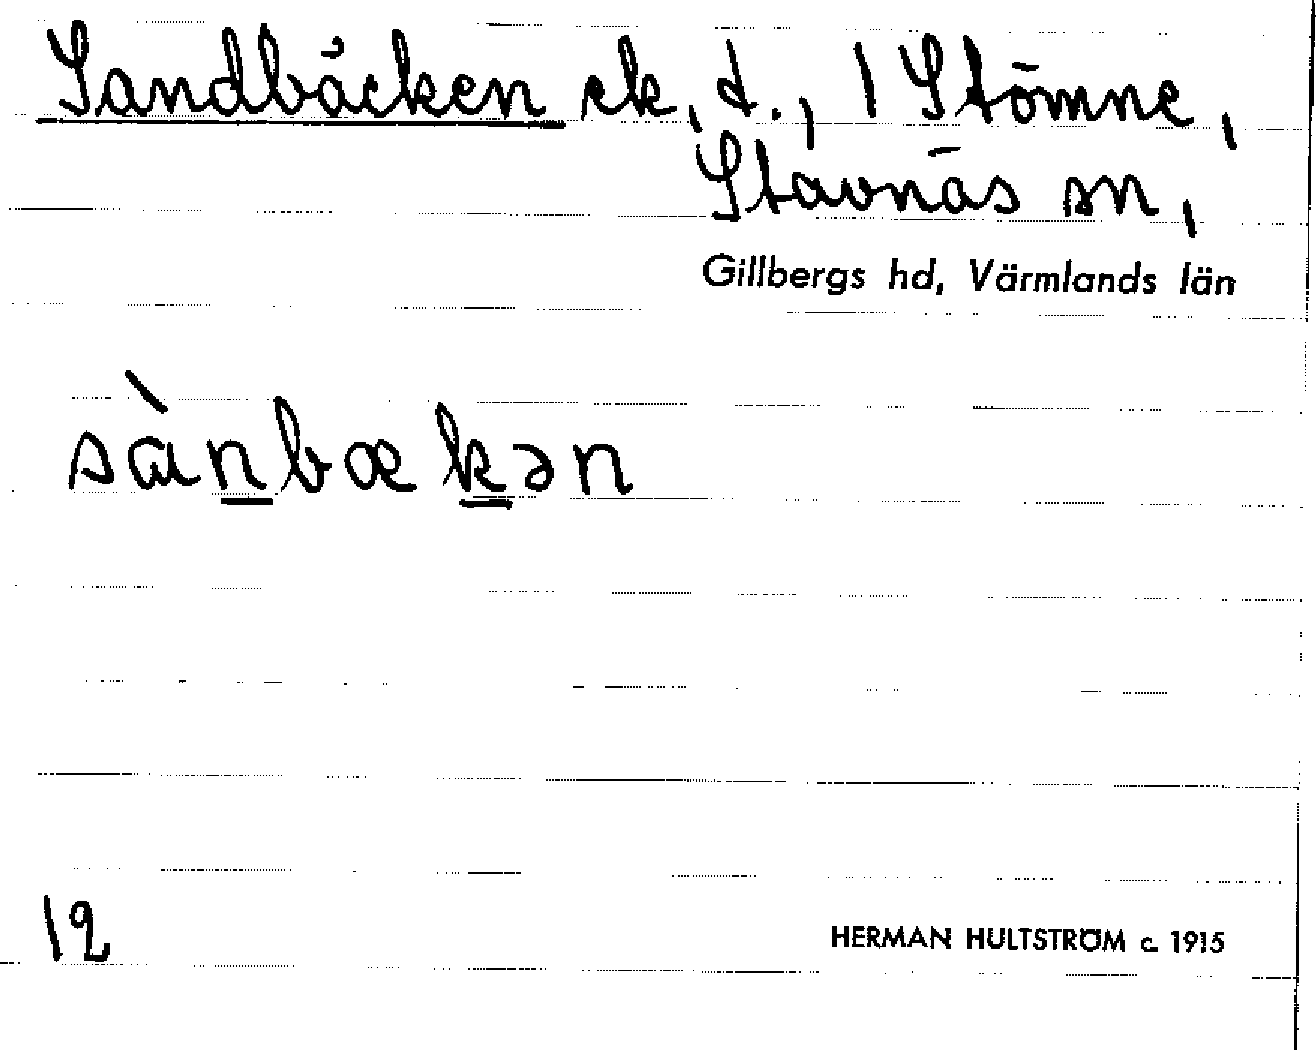 Sandbäcken ek, t., 1 Stömne,
Stavnäs sn,
Gillbergs hd, Värmlands län
sànbækən
12
HERMAN HULTSTRÖM c. 1915